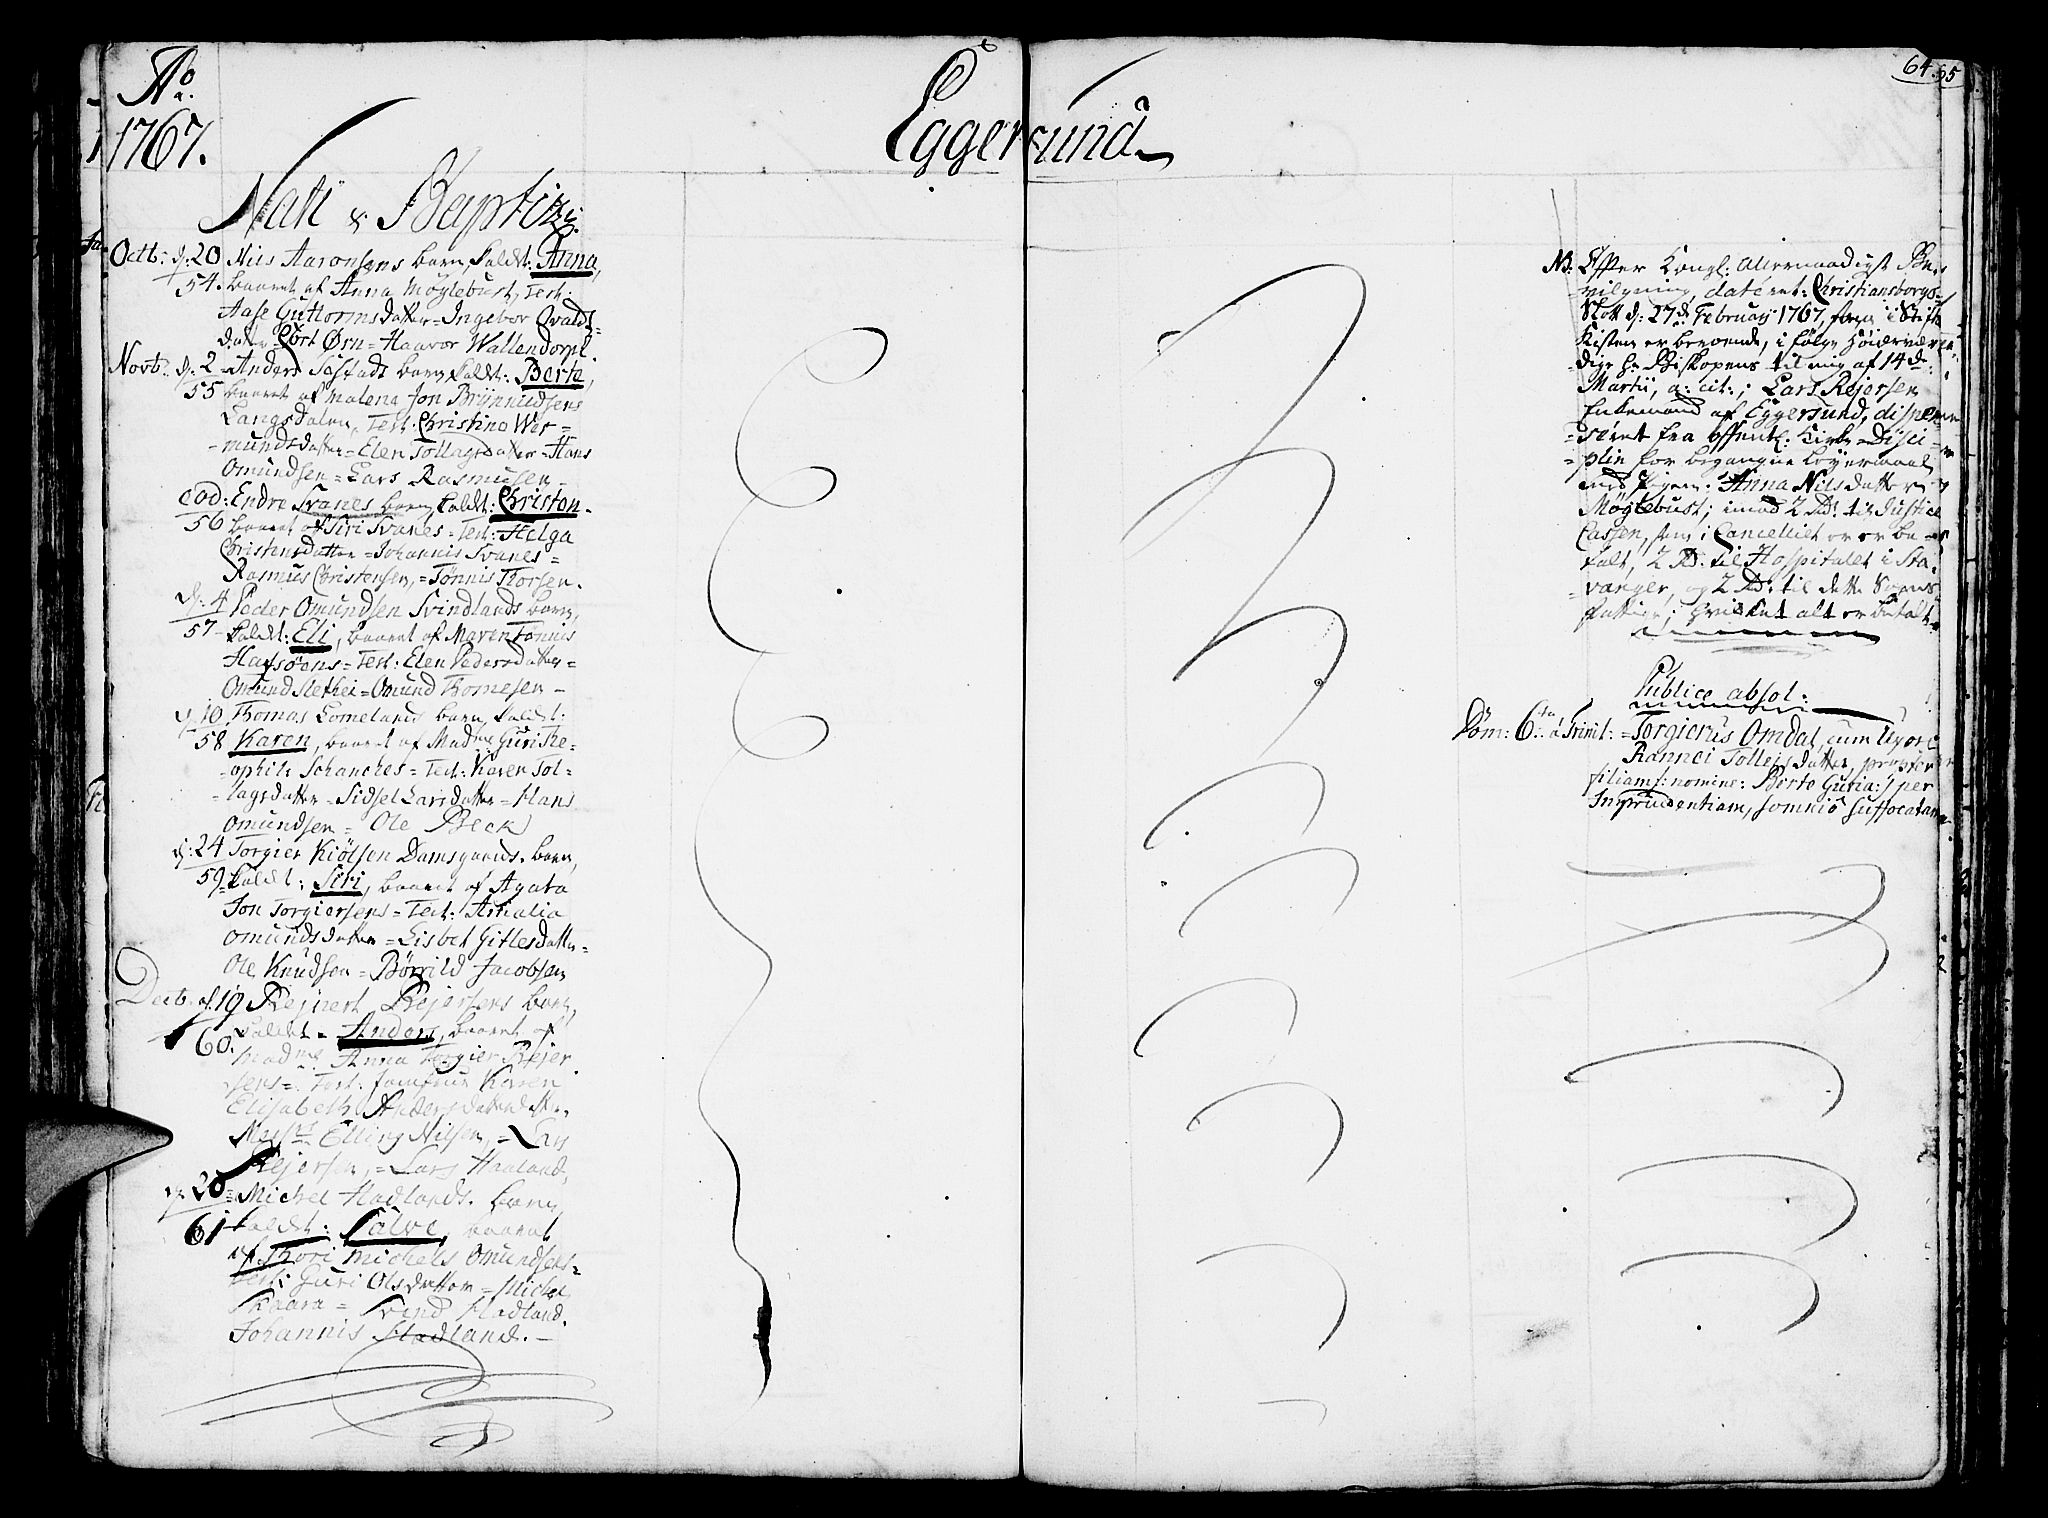 Ao.
1767.
Eggersund
64. 65
Nati & Baptizi.
Octb: d: 20 Nils Aaronsens barn, kaldt: Anna,
54. baaret af Anna Møglebust, Test:
Aase Guttormsdatter = Ingebor Ovalds=
datter = Cort Ørn = Haavor Wallendorph.
Novb: d: 2 Anders Sæstads barn kaldt: Berte,
55 baaret af Malena Jon Brynnildsens
Langsdalen, Test: Christina Wer=
=mundsdatter = Elen Tollagsdatter = Hans
Omundsen = Lars Rasmusen =
eod: Endre Svanes barn kaldt: Christen.
56 baaret af Siri Svanes = Test: Helga
Christensdatter = Johannis Svanes =
Rasmus Christensen, = Tønnis Thorsen.
d: 4 Peder Omundsen Svindlands barn,
57 - kaldt: Eli, baaret af Maren Tønnis
Hafsøens = Test: Elen Pedersdatter =
Omund Slethei = Omund Thomesen -
d: 10 Thomas Lomelands barn, kaldt:
58 Karen, baaret af Madme Guri The=
=ophili Schanches = Test: Karen Tol=
=lagsdatter = Sidsel Larsdatter = Hans
Omundsen = Ole Beck
d: 24 Torgier Kiølsen Damsgaards barn,
59 = kaldt: Siri, baaret af Agata
Jon Torgiersens = Test: Amalia
Omundsdatter = Lisbet Gitlesdatter =
Ole Knudsen = Børrild Jacobsen
Decb. d. 19 Rejnert Rejersens barn,
60. kaldt = Anders, baaret af
Madme Anna Torgier Rejer
sens = Test: Jomfrue Karen
Elisabeth Andersdatter
Messrs Elling Nilsen, = Lars
Rejersen, = Lars Haaland,
d: 20 = Michel Hadlands barn
61 kaldt: Salve, baaret
af Thori Michels Omundsens =
Test: Guri Olsdatter = Michel
Skaara = Svend Hadland.
Johannis Stadland. -
NB: Efter Kongl: Allernaadigst Be=
=vilgning, dateret: Christiansborgs
Slott d: 27de Februarij 1767, som i Stifts
Kisten er beroende, i følge Høiærvær=
=dige Hr Biskopens til mig af 14de
Martii, a: cit:; Lars Rejersen
Enkemand af Eggersund, dispen=
=seret fra offentl: Kirke = Disci=
=plin for begangne Leyermaal
med Pigen Anna Nilsdatter
Møglebust; imod 2 Rd: til Justice
Cassen, som i Cancelliet er be=
talt, 2 Rd: til Hospitalet i Sta=
=vanger, og 2 Rd: til dette Sogns
fattige; hvilket alt er betalt.
Publice absol:
Dom: 6ta à Trinit: = Torgierus Omdal, cum Uxore
Rannei Tollejsdatter, propter
filiam /: nomine: Berte Guria :/ per
Imprudentiam, somniô suffocatam.